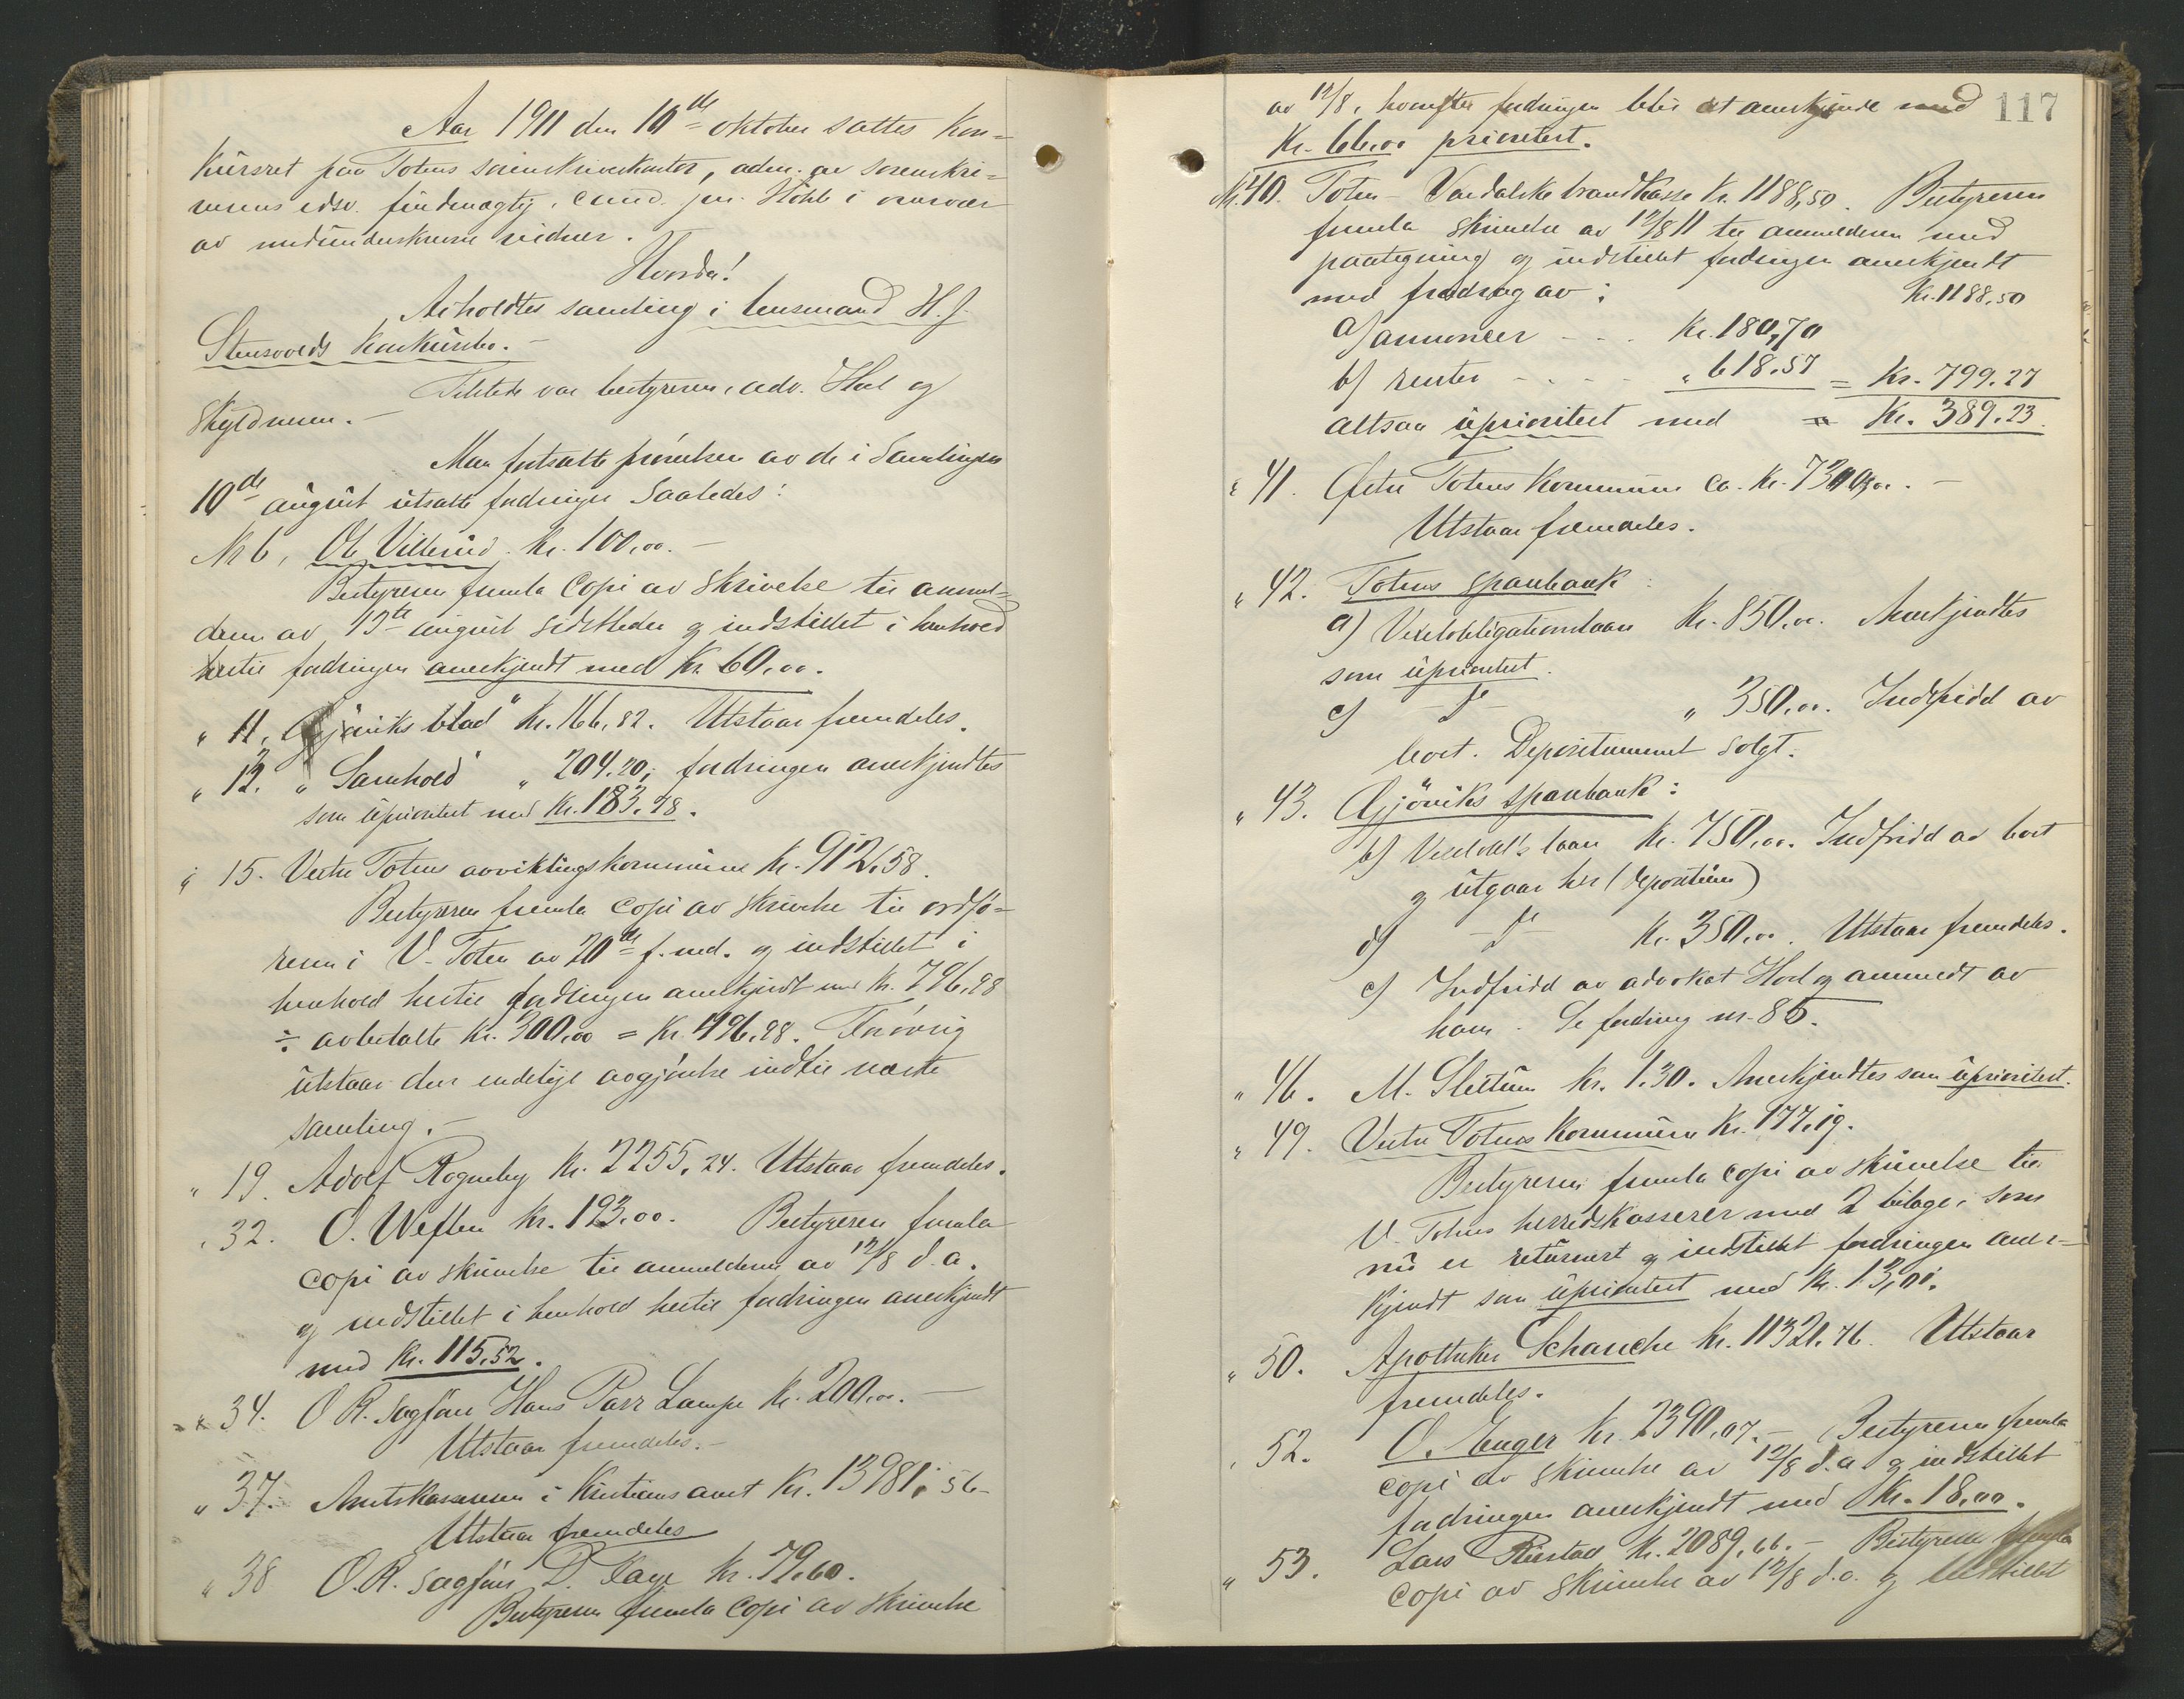 Aar 1911 den 10de oktober sattes kon=
kursret paa Totens sorenskriverkontor, adm. av sorenskri=
verens edsv. fuldmægtig, cand. jur. i overvær
av medunderskrevne vidner.
Hvorda!
Avholdtes samling i lensmand H. J.
Stensvolds konkursbo. -
Tilstede var bestyreren, adv. Hoel og
skyldneren. -
Man fortsatte prøvelsen av de i Samlingen
10de august utsatte fordringer Saaledes:
Nr 6, Ole Villerud. Kr. 100,00. -
Bestyreren fremla Copi av skrivelse til anmel=
deren av 15te august sidstleden og indstillet i henhold
hertil fordringen anerkjendt med Kr. 60,00.
" 11, Gjøviks blad" Kr. 166,82. Utstaar fremdeles.
" 12. "Samhold" " 204.20; fordringen anerkjendtes
som uprioritert med Kr. 183.98.
" 15. Vestre Totens avviklingskommune Kr. 912,58.
Bestyreren fremla Copi av skrivelse til ordfø=
reren i V. Toten av 20de f. md. og indstillet i
henhold hertil fordringen anerkjendt med Kr. 796,98
÷ avbetalte Kr. 300,00 = Kr. 496,98. Forøvrig
utstaar den endelige avgjørelse indtil næste
samling. -
" 19. Adolf Rogneby Kr. 2255,24. Utstaar fremdeles.
" 32. O. Weflen Kr. 193.00. Bestyreren fremla
Copi av skrivelse til anmelderen av 12/8 d. a.
og indstillet i henhold hertil fordringen anerkjendt
med Kr. 115,52.
" 34. O. R. Sagfører Hans Parr Lampe Kr. 200,00. -
Utstaar fremdeles. -
" 37. Amtskassereren i Kristians amt Kr. 13981,56
Utstaar fremdeles
" 38 O.R. sagfører D. Kr. 79,60.
Bestyreren fremla Copi av skrivelse
117
av 12/8, hvorefter fordringen blir at anerkjende med
Kr. 66,00 prioritert.
Nr. 40. Toten - Vardalske brandkasse Kr. 1188,50. Bestyreren
fremla Skrivelse av 12/8 11 til anmelderen med
paategning og indstillet fordringen anerkjendt
med fradrag av: Kr. 1188,50
a) annoncer - - . Kr. 180,70
b) renter - - - - " 618.57 = Kr. 799.27
altsaa uprioritert med = Kr. 389.23
" 41. Østre Totens Kommune ca. Kr. -
Utstaar fremdeles.
" 42. Totens sparebank:
a) Vexelobligationslaan Kr. 850,00. Anerkjendtes
som uprioritert.
c) -do- " 350,00. Indfridd av
boet. Depositummet solgt.
" 43. Gjøviks sparebank:
b) Vexelobl's laan Kr. 750,00. Indfridd av boet
og utgaar her (depositum)
d) -do- Kr. 350,00. Utstaar fremdeles.
c) Indfridd av advokat Hoel og anmeldt av
ham. Se fordring nr. 85.
" 46. M. Slettum Kr. 1.30. Anerkjendtes som uprioritert.
" 49. Vestre Totens Kommune Kr. 177.19.
Bestyreren fremla copi av skrivelse til
V. Totens herredskasserer med 2 bilage, som
nu er returnert og indstillet fordringen aner=
kjendt som uprioritert med Kr. 13,01.
" 50. Apotheker Schanche Kr. 11321.76. Utstaar
fremdeles.
" 52. O. Enger Kr. 2390,07. - Bestyreren fremla
copi av skrivelse av 12/8 d.a. og indstillet
fordringen anerkjendt med Kr. 18,00.
" 53. Lars Kr. 2089,66. - Bestyreren fremla
Copi av skrivelse av 12/8 d.a. og indstillet